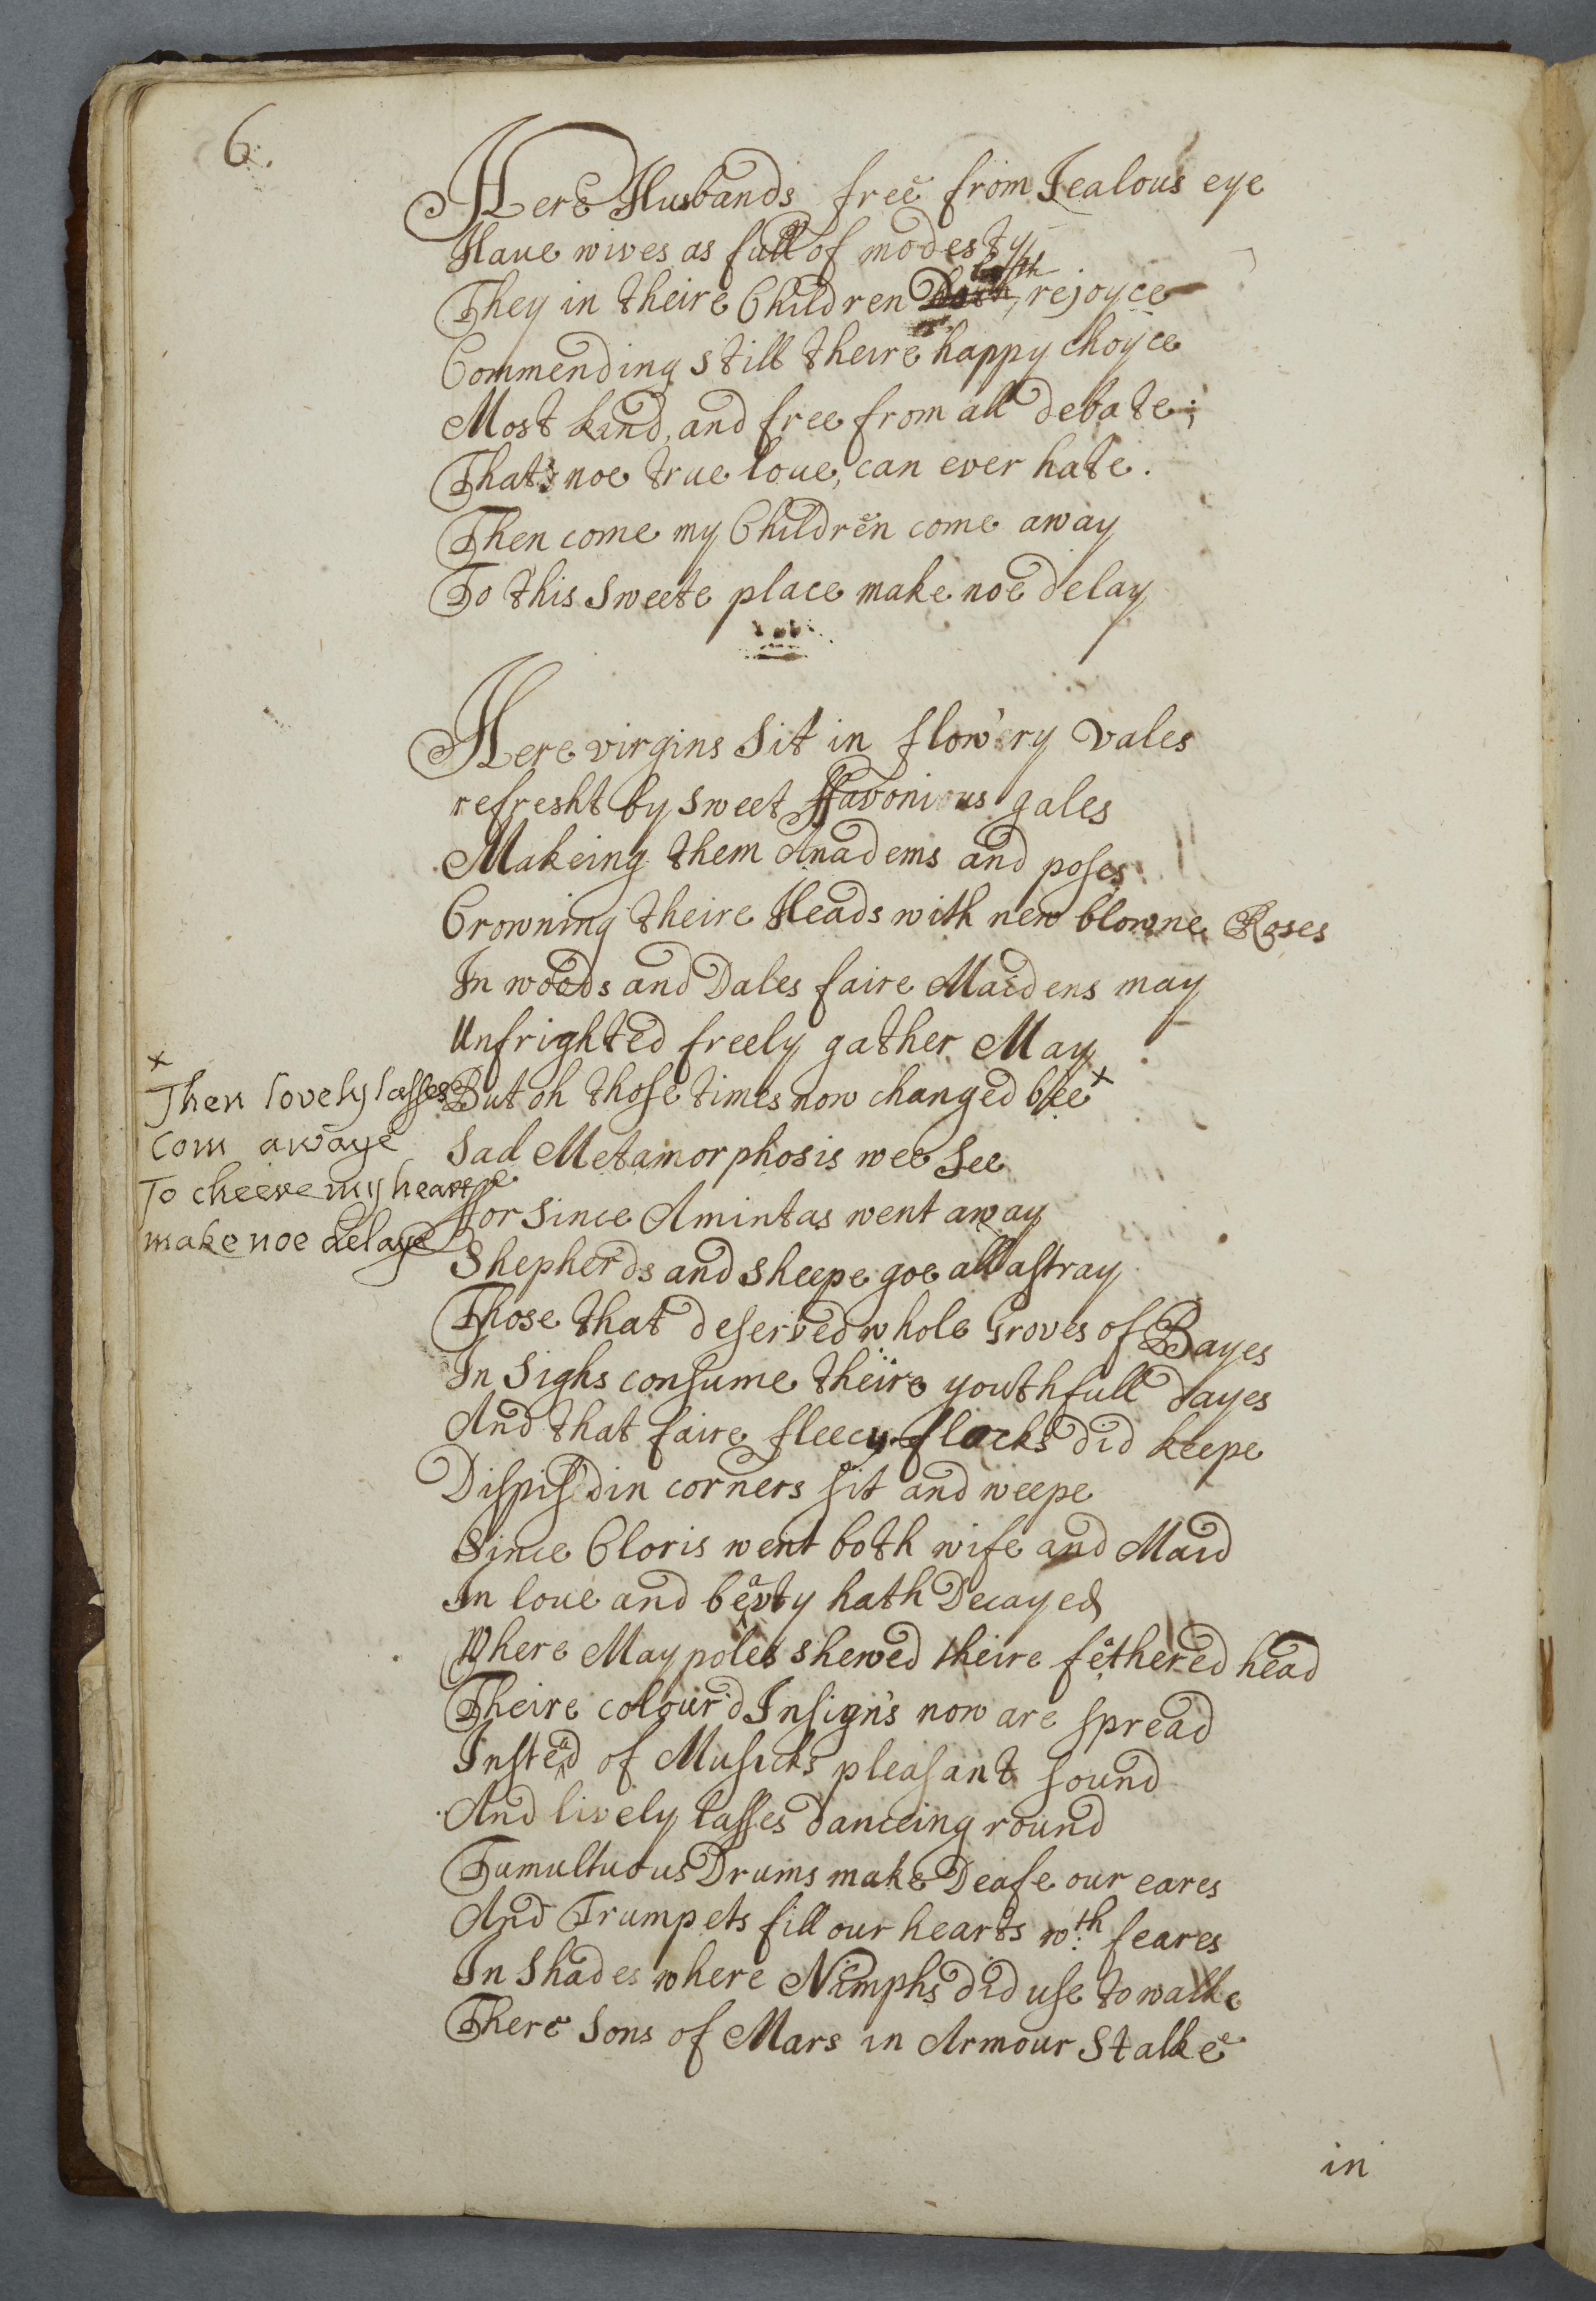 6.
Here Husbands free from Jealous eye
Haue wives as full of modesty
They in theire Children both rejoyce
Commending still theire happy choyce
Most kind, and free from all debate;
That's noe true loue, can ever hate.
Then come my Children come away
To this sweete place make noe delay
Here virgins sit in flow'ery vales
refresht by sweet ffavonious gales
Makeing them Anadems and poses
Crowning theire Heads with new blowne Roses
In woods and Dales faire Maidens may
Unfrighted freely gather May
x
Then lovely lasses
com awaye
To cheere my heart
make noe delaye
But oh those times now changed bee x
Sad Metamorphosis wee see
ffor since Amintas went away
Shepherds and sheepe goe all astray
Those that deserved whole Groves of Bayes
In sighs consume theire youthfull dayes
And that faire fleecy flocks did keepe
Dispis'd in corners sit and weepe
Since Cloris went both wife and Maid
In loue and beavty hath Decayed
Where Maypoles shewed theire feathered head
Theire colour'd Insign's now are spread
Instead of Musicks pleasant sound
And lively lasses danceing round
Tumultuous Drums make Deafe our eares
And Trumpets fill our hearts wth feares
In shades where Nimphs did use to walke
There sons of Mars in Armour stalke
in